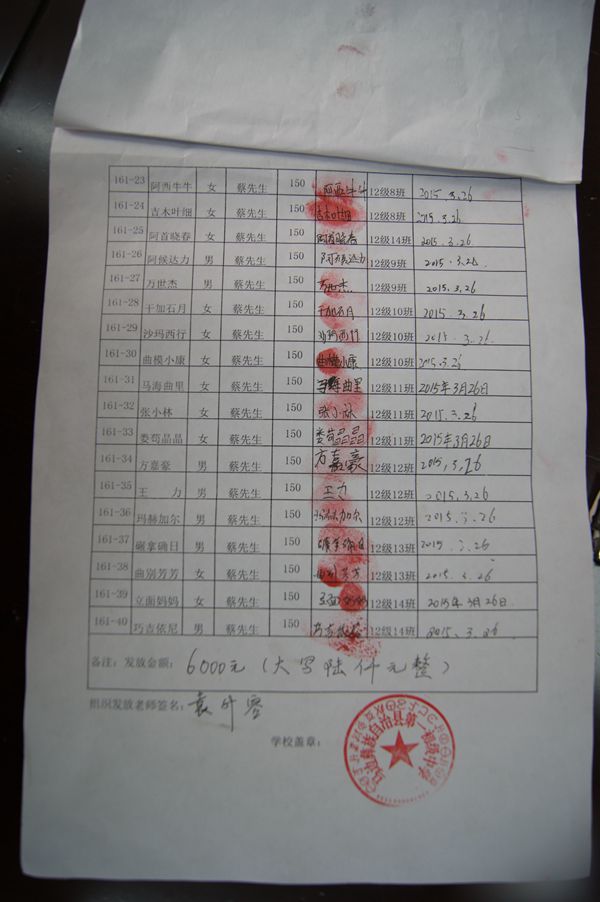 161-23 阿西牛牛 女 蔡先生 150 阿西牛牛 12级8班 2015.3.26
161-24 吉木叶细 女 蔡先生 150 吉木叶细 12级8班 2015.3.26
161-25 阿首晓春 女 蔡先生 150 阿首晓春 12级14班 2015.3.26
161-26 阿候达力 男 蔡先生 150 阿候达力 12级9班 2015.3.26
161-27 万世杰 男 蔡先生 150 万世杰 12级9班 2015.3.26
161-28 干加石月 女 蔡先生 150 干加石月 12级10班 2015.3.26
161-29 沙玛西行 女 蔡先生 150 沙玛西行 12级10班 2015.3.26
161-30 曲模小康 女 蔡先生 150 曲模小康 12级10班 2015.3.26
161-31 马海曲里 女 蔡先生 150 马海曲里 12级11班 2015年3月26日
161-32 张小林 女 蔡先生 150 张小林 12级11班 2015.3.26
161-33 娄苟晶晶 女 蔡先生 150 娄苟晶晶 12级11班 2015年3月26日
161-34 方嘉豪 男 蔡先生 150 方嘉豪 12级12班 2015.3.26
161-35 王 力 男 蔡先生 150 王力 12级12班 2015.3.26
161-36 玛赫加尔 男 蔡先生 150 玛赫加尔 12级12班 2015.3.26
161-37 硐拿确日 男 蔡先生 150 12级13班 2015.3.26
161-38 曲别芳芳 女 蔡先生 150 曲别芳芳 12级13班 2015.3.26
161-39 立面妈妈 女 蔡先生 150 12级14班 2015年3月26日
161-40 巧吉依尼 男 蔡先生 150 巧吉依尼 12级14班 2015.3.26
备注：发放金额： 6000元（大写陆仟元整）
组织发放老师签名： 袁
学校盖章：
彝族自治县第一初级中学